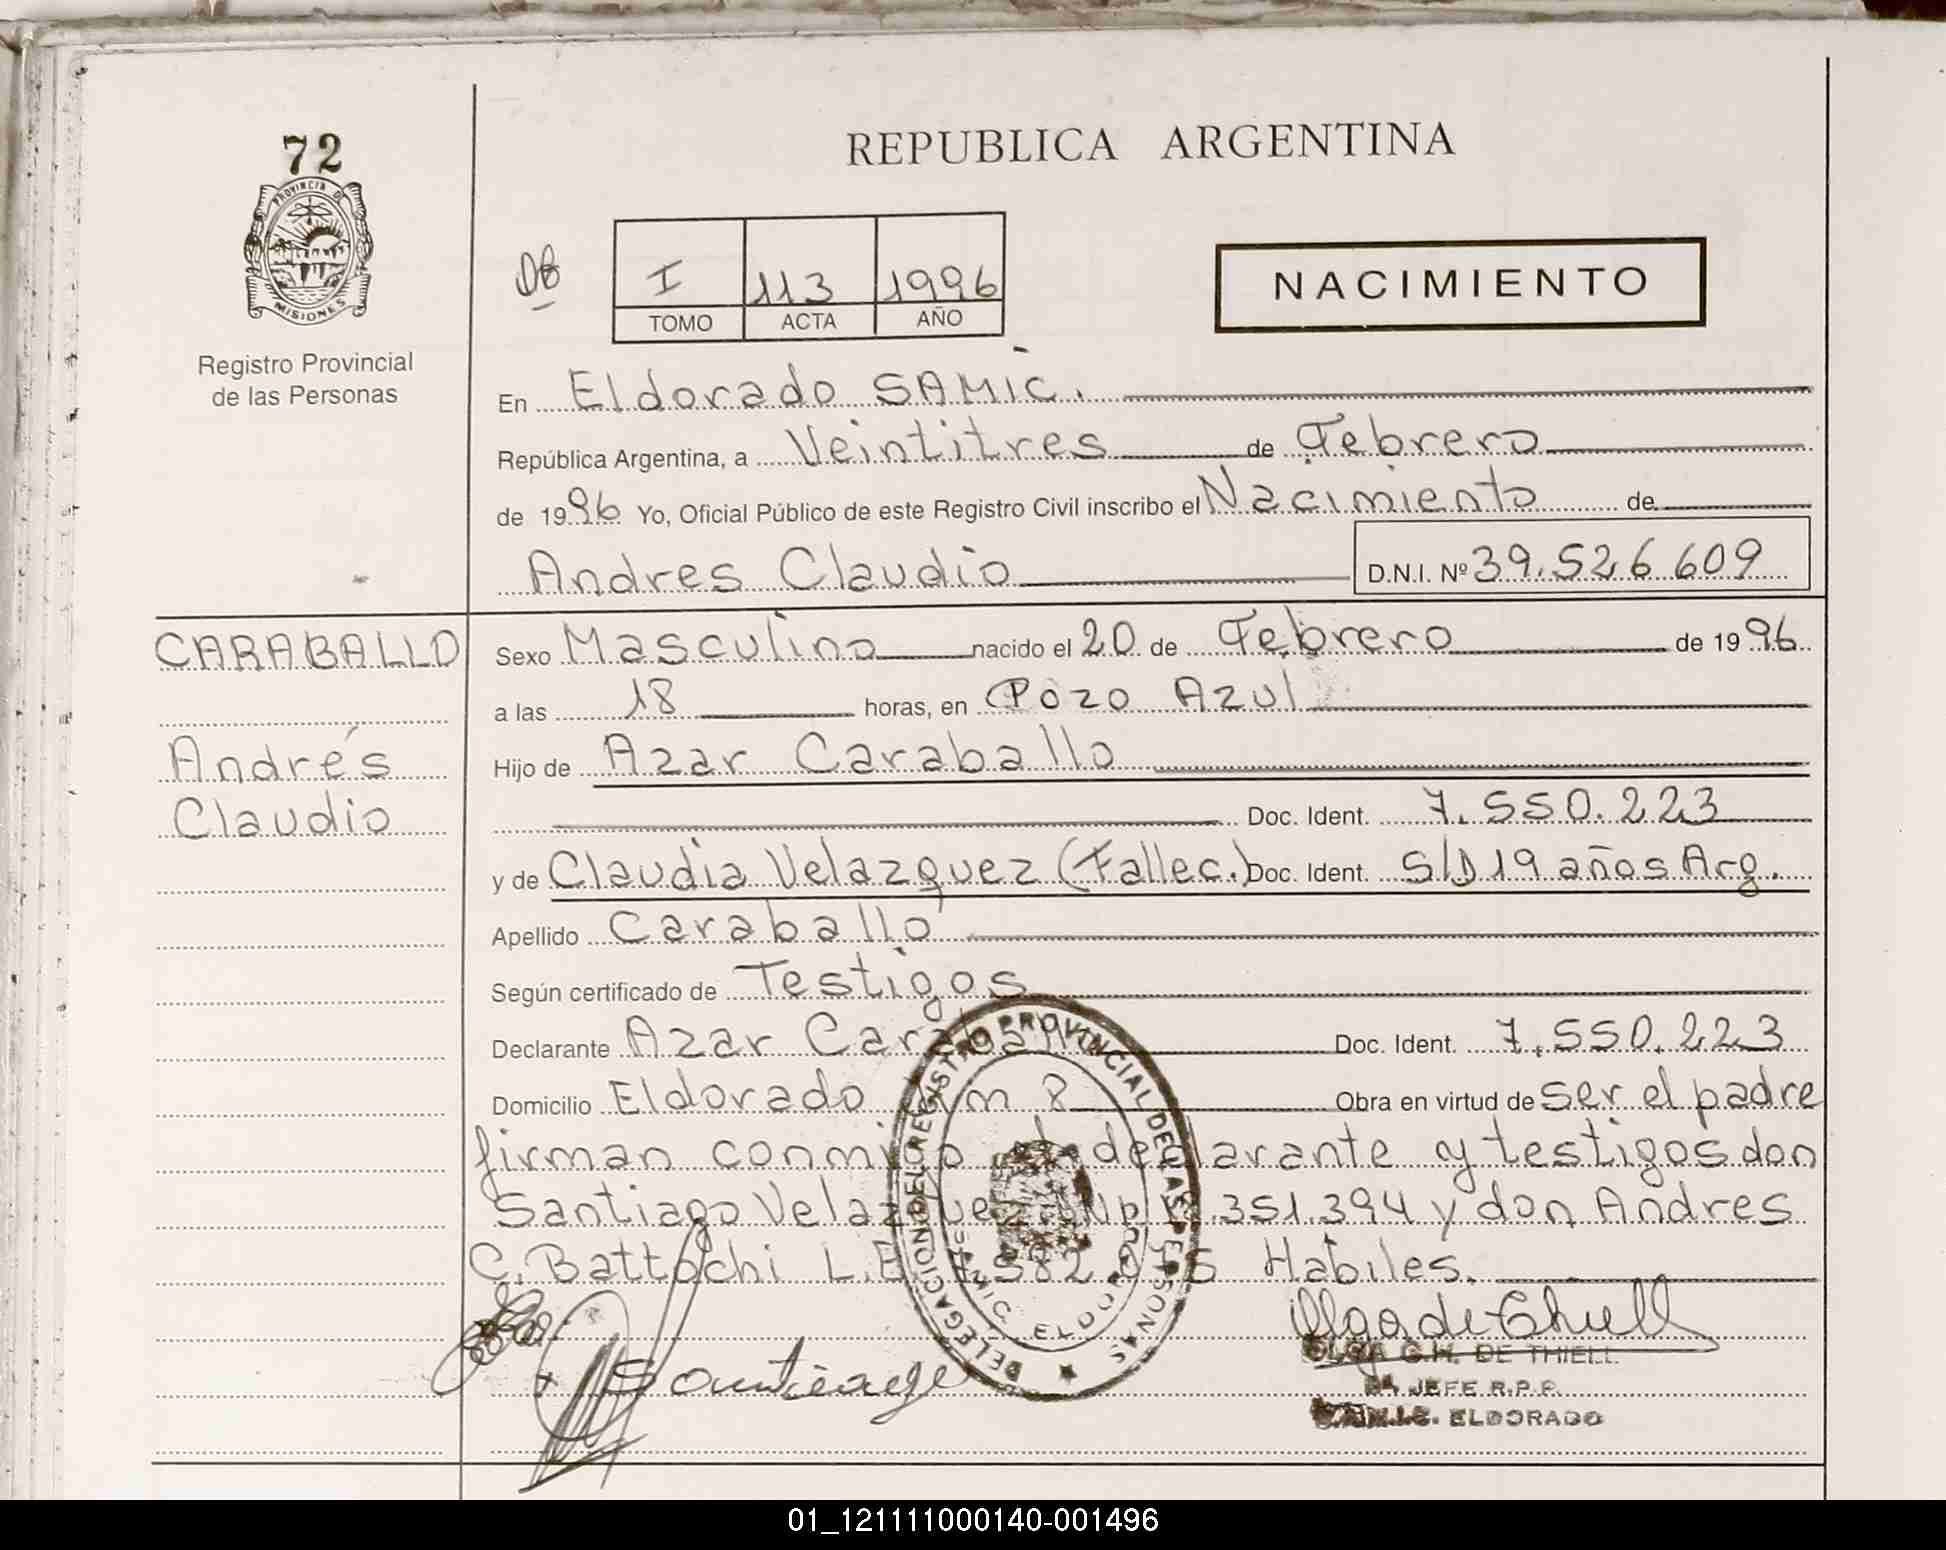 72
PROVINCIA D
MISIONES
Registro Provincial
de las Personas
REPUBLICA ARGENTINA
I 113 1996
TOMO ACTA AÑO
NACIMIENTO
En Eldorado SAMIC.
República Argentina, a Veintitres de Febrero
de 1996 Yo, Oficial Público de este Registro Civil inscribo el Nacimiento de
Andres Claudio D.N.I. Nº 39.526.609
CARABALLO
Andrés
Claudio
Sexo Masculino nacido el 20 de Febrero de 1996
a las 18 horas, en Pozo Azul
Hijo de Azar Caraballo
Doc. Ident. 7.550.223
y de Claudia Velazquez (Fallec.) Doc. Ident. S/D 19 años Arg.
Apellido Caraballo
Según certificado de Testigos
Declarante Azar Caraballo Doc. Ident. 7.550.223
Domicilio Eldorado km 8 Obra en virtud de ser el padre
firman conmigo el declarante y testigos don
Santiago Velazquez .351.394 y don Andres
C. Battochi L.E Habiles.
DELEGACION DEL REGISTRO PROVINCIAL DE LAS PERSONAS
Santiago
Olga de Thiell
OLGA G.H. DE THIELL
JEFE R.P.P.
S.A.M.I.C. ELDORADO
01_121111000140-001496